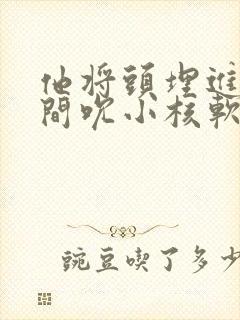 他将頭埋進
間吹小核軟
豌豆喫了多少